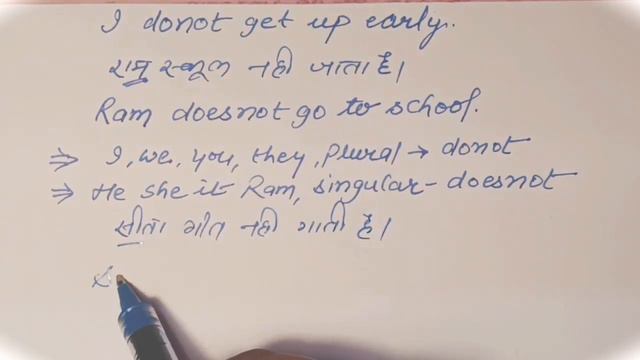 I donot get up early.
रामु स्कूल नही जाता है।
Ram doesnot go to school.
⇒ I, we, you, they, plural → donot
⇒ He she it Ram, singular - doesnot
सीता गीत नही गाती है।